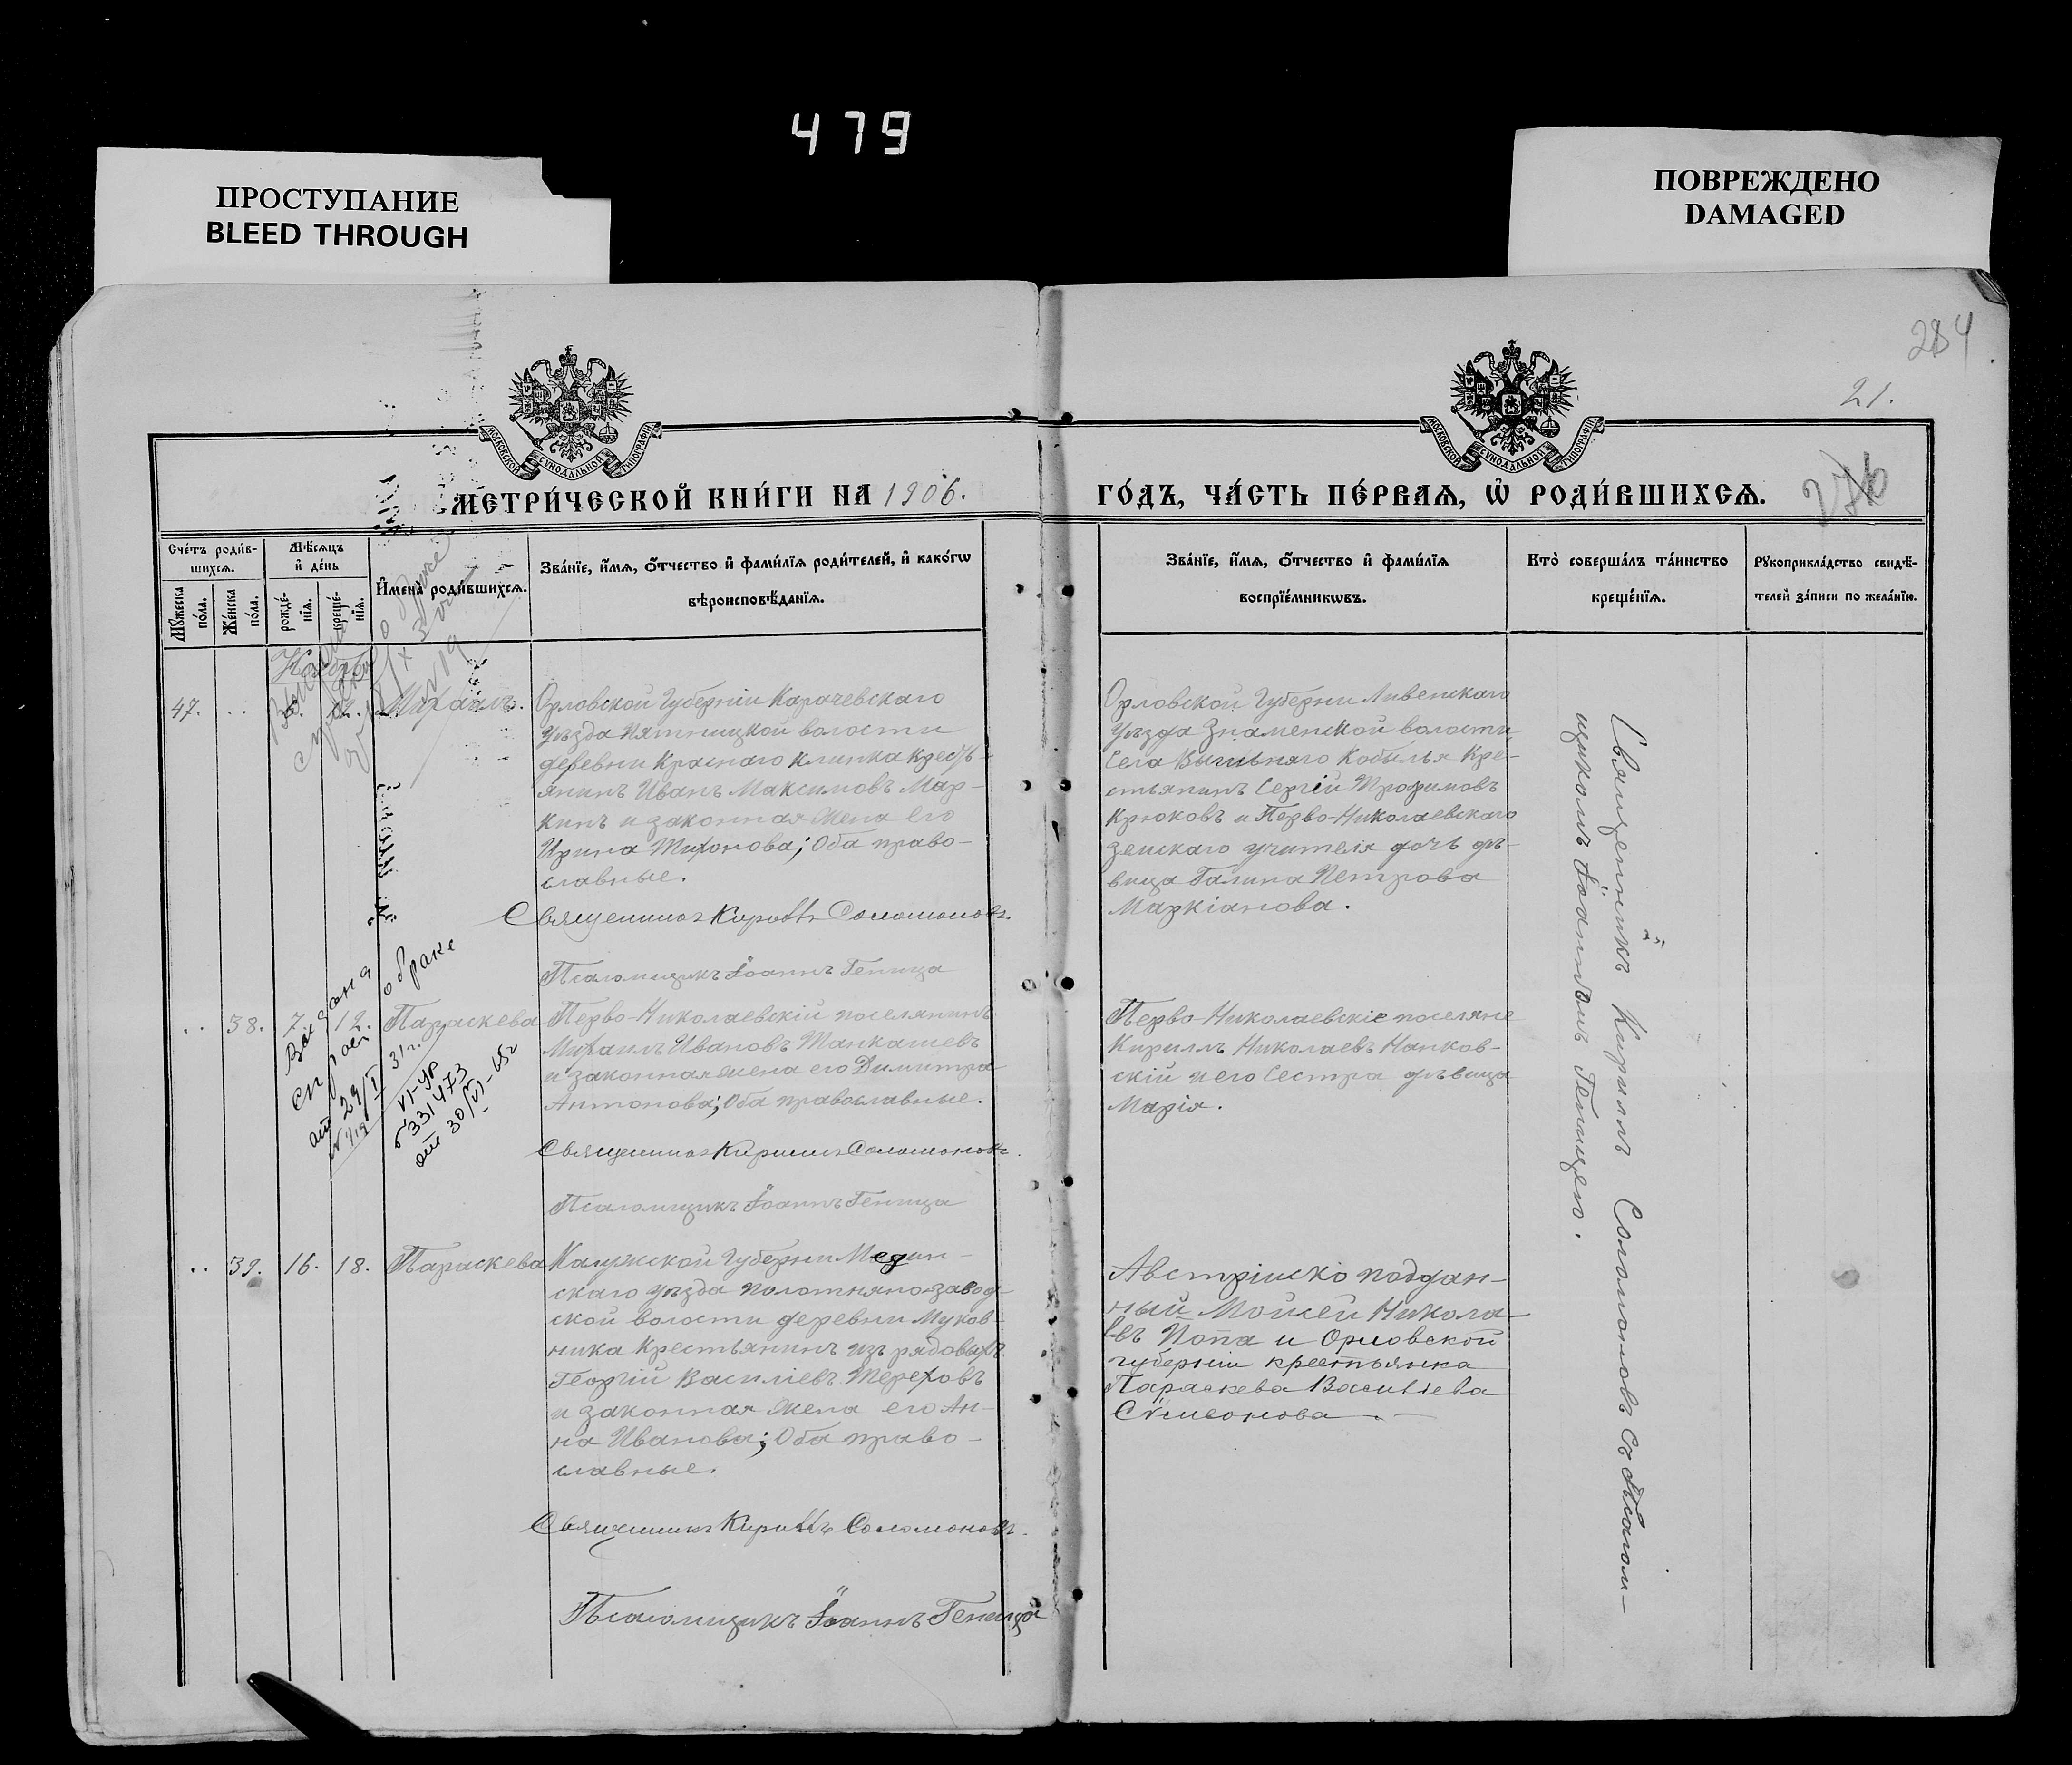 479
ПРОСТУПАНИЕ
BLEED THROUGH
ПОВРЕЖДЕНО
DAMAGED
284
21.
МОСКОВСКОЙ СУНОДАЛЬНОЙ ТИПОГРАФІИ
МОСКОВСКОЙ СУНОДАЛЬНОЙ ТИПОГРАФІИ
МЕТРИ́ЧЕСКОЙ КНИ́ГИ НА 1906.
ГО́ДЪ, ЧА́СТЬ ПЕ́РВАѦ, Ѡ҆ РОДИ́ВШИХСѦ.
276
Сче́тъ роди́в-
шихсѧ.
Мꙋ́жеска по́ла.
Же́нска по́ла.
Мѣ́сѧцъ и҆ де́нь
рожде́-нїѧ.
креще́-нїѧ.
И҆мена̀ роди́вшихсѧ.
Зва́нїе, и҆́мѧ, ѻ҆́тчество и҆ фами́лїѧ роди́телей, и҆ како́гѡ
вѣроисповѣ́данїѧ.
Зва́нїе, и҆́мѧ, ѻ҆́тчество и҆ фами́лїѧ
воспрїе́мникѡвъ.
Кто̀ соверша́лъ та́инство
креще́нїѧ.
Рꙋкоприкла́дство свидѣ́-
телей за́писи по жела́нїю.
Ноябрь
47. .. Михаилъ.
Орловской Губерніи Карачевскаго
уѣзда Пятницкой волости
деревни Краснаго Клинка Кресть-
янинъ Иванъ Максимовъ Мар-
кинъ и законная жена его
Ирина Тихонова; Оба право-
славные.
Священникъ Кириллъ Соломоновъ.
Псаломщикъ Іоаннъ Геница
Орловской Губерни Ливенскаго
уѣзда Знаменской волости
Села Кобылья Кре-
стьянинъ Сергій Трофимовъ
Крюковъ и Перво-Николаевскаго
земскаго учителя дочь дѣ-
вица Галина Петрова
Маркіанова.
Священникъ Кириллъ Соломоновъ съ Псалом-
щикомъ Іоанномъ Геницею.
.. 38. 7. 12. Параскева
Перво-Николаевскій поселянинъ
Михаилъ Ивановъ Танкашевъ
и законная жена его Димитра
Антонова; Оба православные.
Священникъ Кириллъ Соломоновъ.
Псаломщикъ Іоаннъ Геница
Перво-Николаевскіе поселяне
Кириллъ Николаевъ Нанков-
скій и его Сестра дѣвица
Марія.
Выдана
о браке
от 29/I 31г.
VI-УР
№331473
от 30/VI-65г
.. 39. 16. 18. Параскева
Калужской Губерни Медын-
скаго уѣзда Полотняно-завод-
ской волости деревни Муков-
ника Крестьянинъ изъ рядовыхъ
Георгій Василіевъ Тереховъ
и законная жена его Ан-
на Иванова; Оба право-
славные.
Священникъ Кириллъ Соломоновъ.
Псаломщикъ Іоаннъ Геница
Австрійско поддан-
ный Мойсей Никола-
евъ Попа и Орловской
губерніи крестьянка
Параскева Василіева
Сѵмеонова.